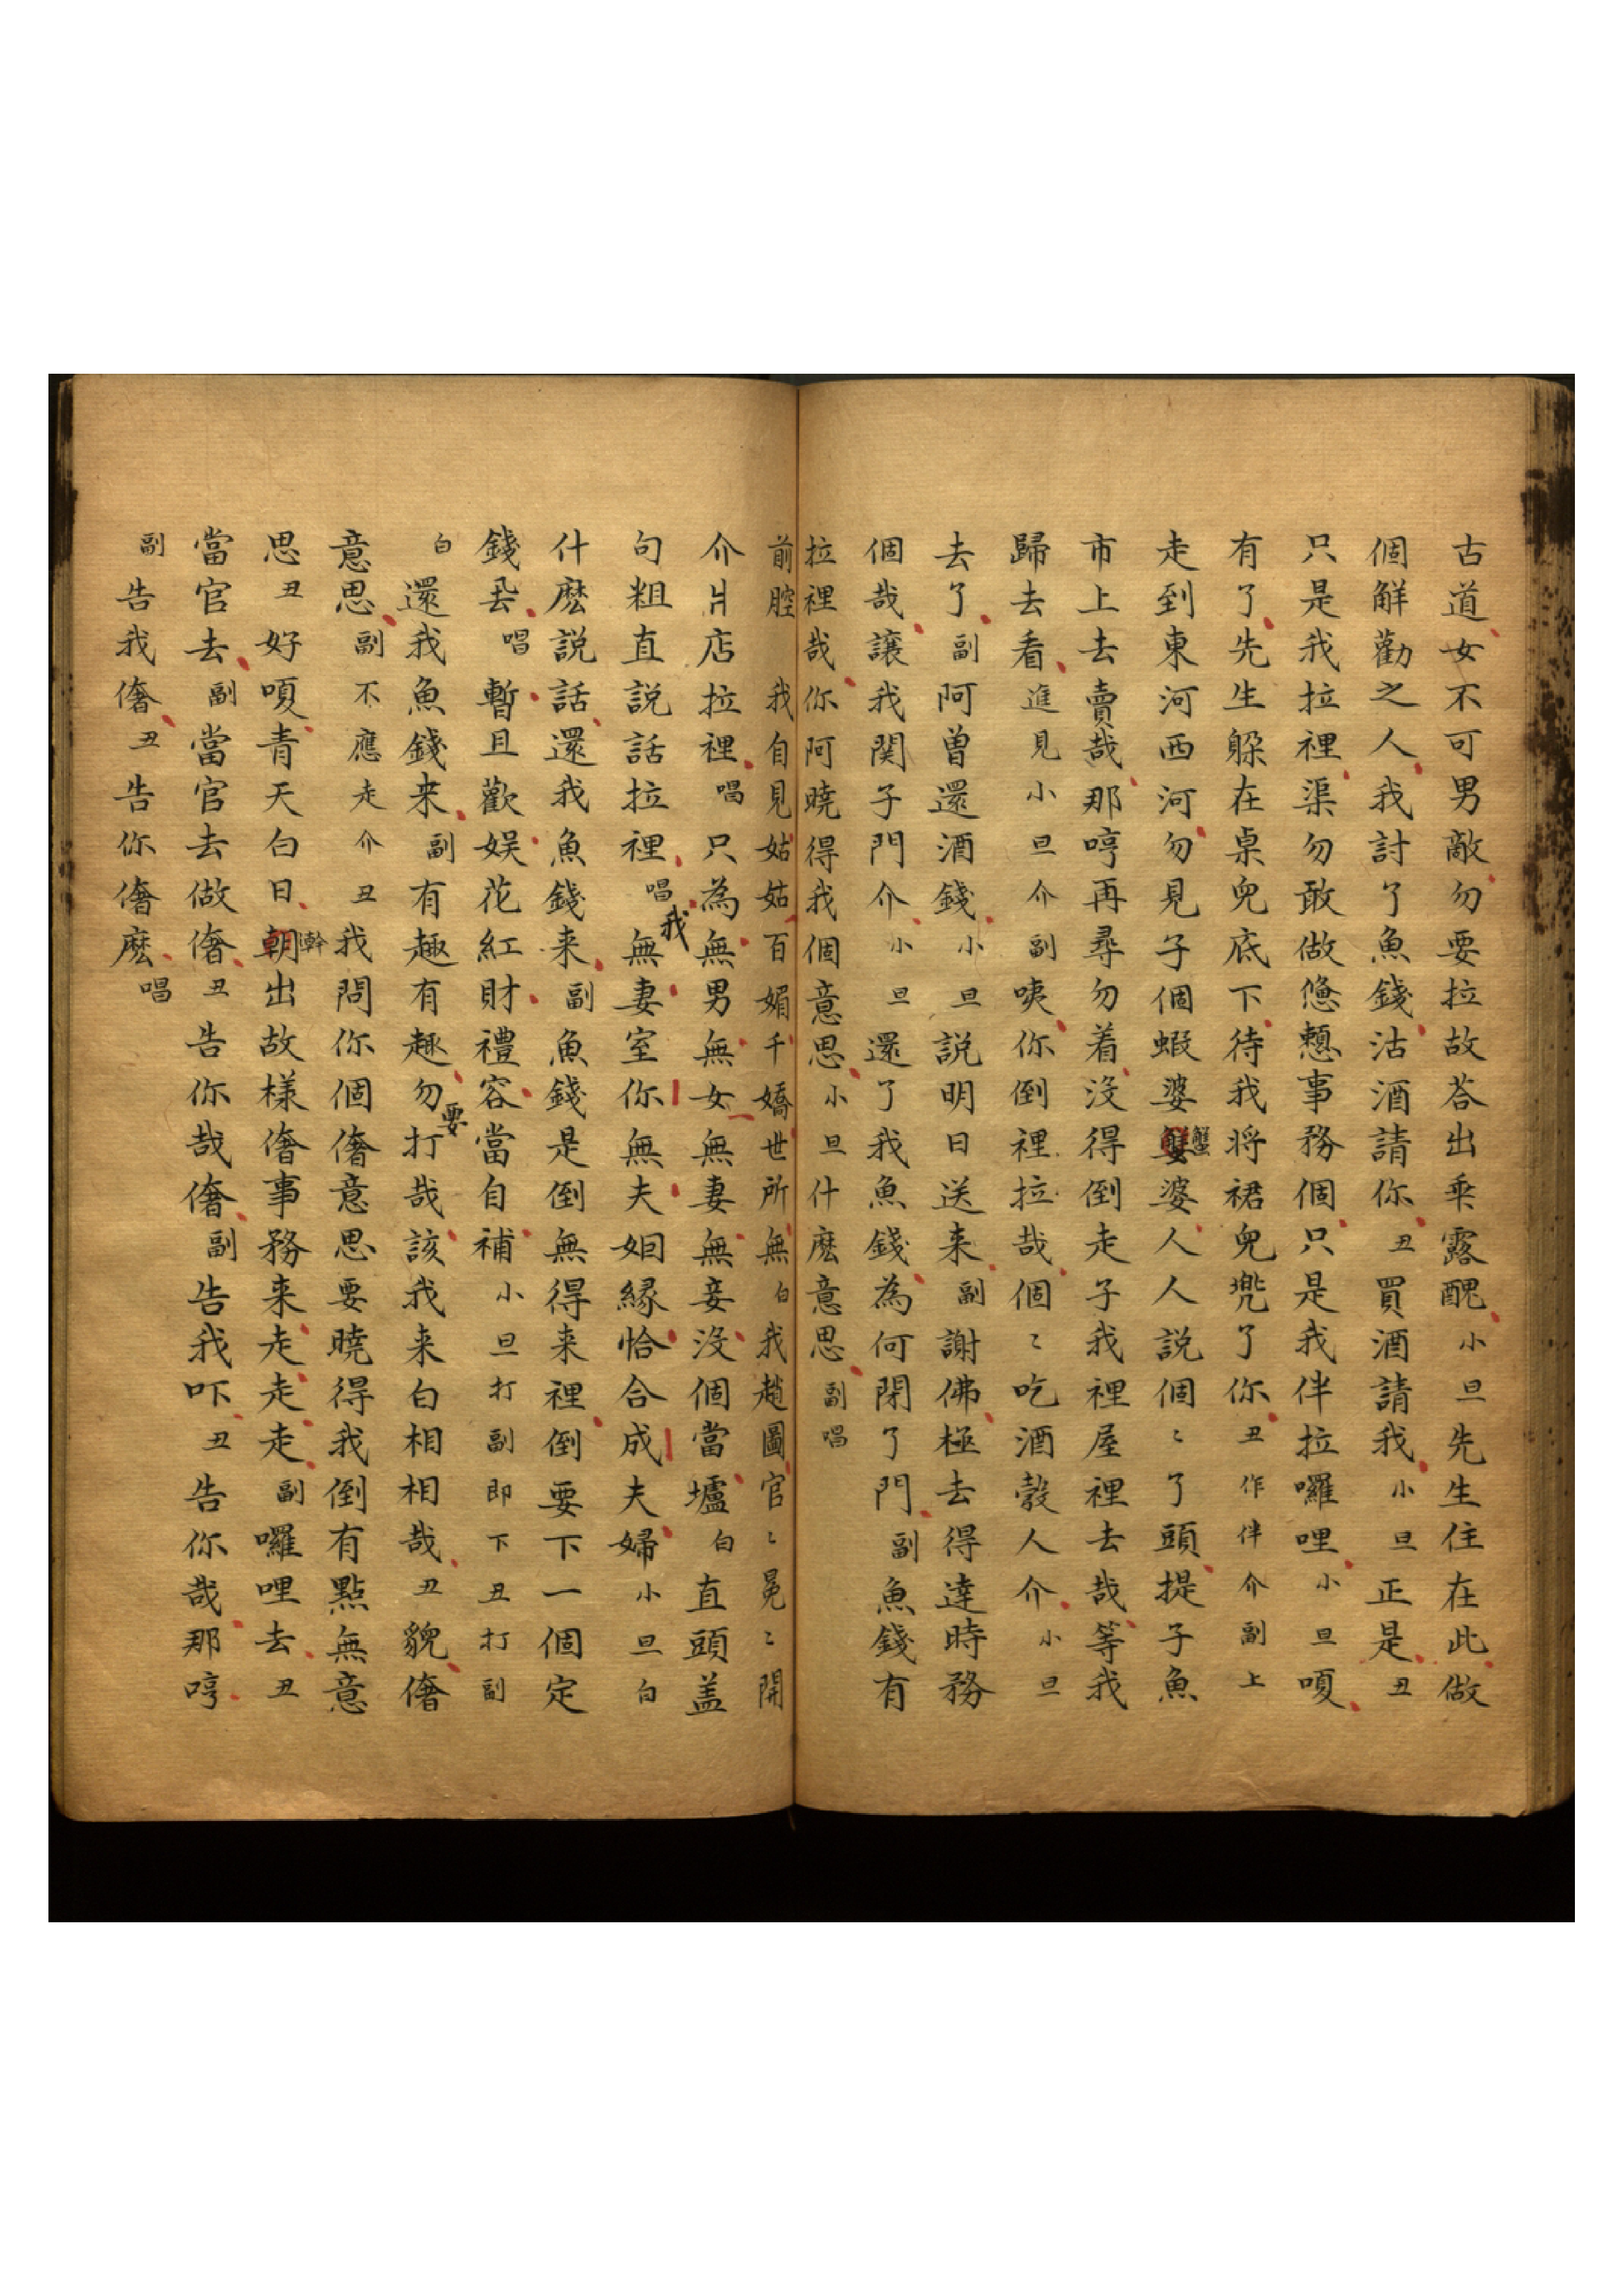 古道女不可男敵勿要拉故荅出乖露醜小旦先生住在此做
個解勸之人我討了魚錢沽酒請你丑買酒請我小旦正是丑
只是我拉裡渠勿敢做憊㦬事務個只是我伴拉囉哩小旦嗄
有了先生躱在桌兒底下待我將裙兒兠了你丑作伴介副上
走到東河西河勿見子個蝦婆蟹婆人人説個〻了頭提子魚
市上去賣哉那哼再尋勿着沒得倒走子我裡屋裡去哉等我
歸去看進見小旦介副咦你倒裡拉哉個〻吃酒穀人介小旦
去了副阿曽還酒錢小旦説明日送来副謝佛極去得達時務
個哉讓我関子門介小旦還了我魚錢為何閉了門副魚錢有
拉裡哉你阿曉得我個意思小旦什麽意思副唱
前腔 我自見姑姑百媚千嬌世所無白我趙圖官〻冕〻開
介爿店拉裡唱只為無男無女無妻無妾沒個當壚白直頭盖
句粗直説話拉裡唱我無妻室你無夫姻縁恰合成夫婦小旦白
什麽説話還我魚錢来副魚錢是倒無得来裡倒要下一個定
錢丟唱暫且歡娛花紅財禮容當自補小旦打副即下丑打副
白還我魚錢来副有趣有趣勿要打哉該我来白相相哉丑貌儈
意思副不應走介丑我問你個儈意思要曉得我倒有點無意
思丑好嗄青天白日朝出故様儈事務来走走走副囉哩去丑
當官去副當官去做儈丑告你哉儈副告我吓丑告你哉那哼
副告我儈丑告你儈麽唱